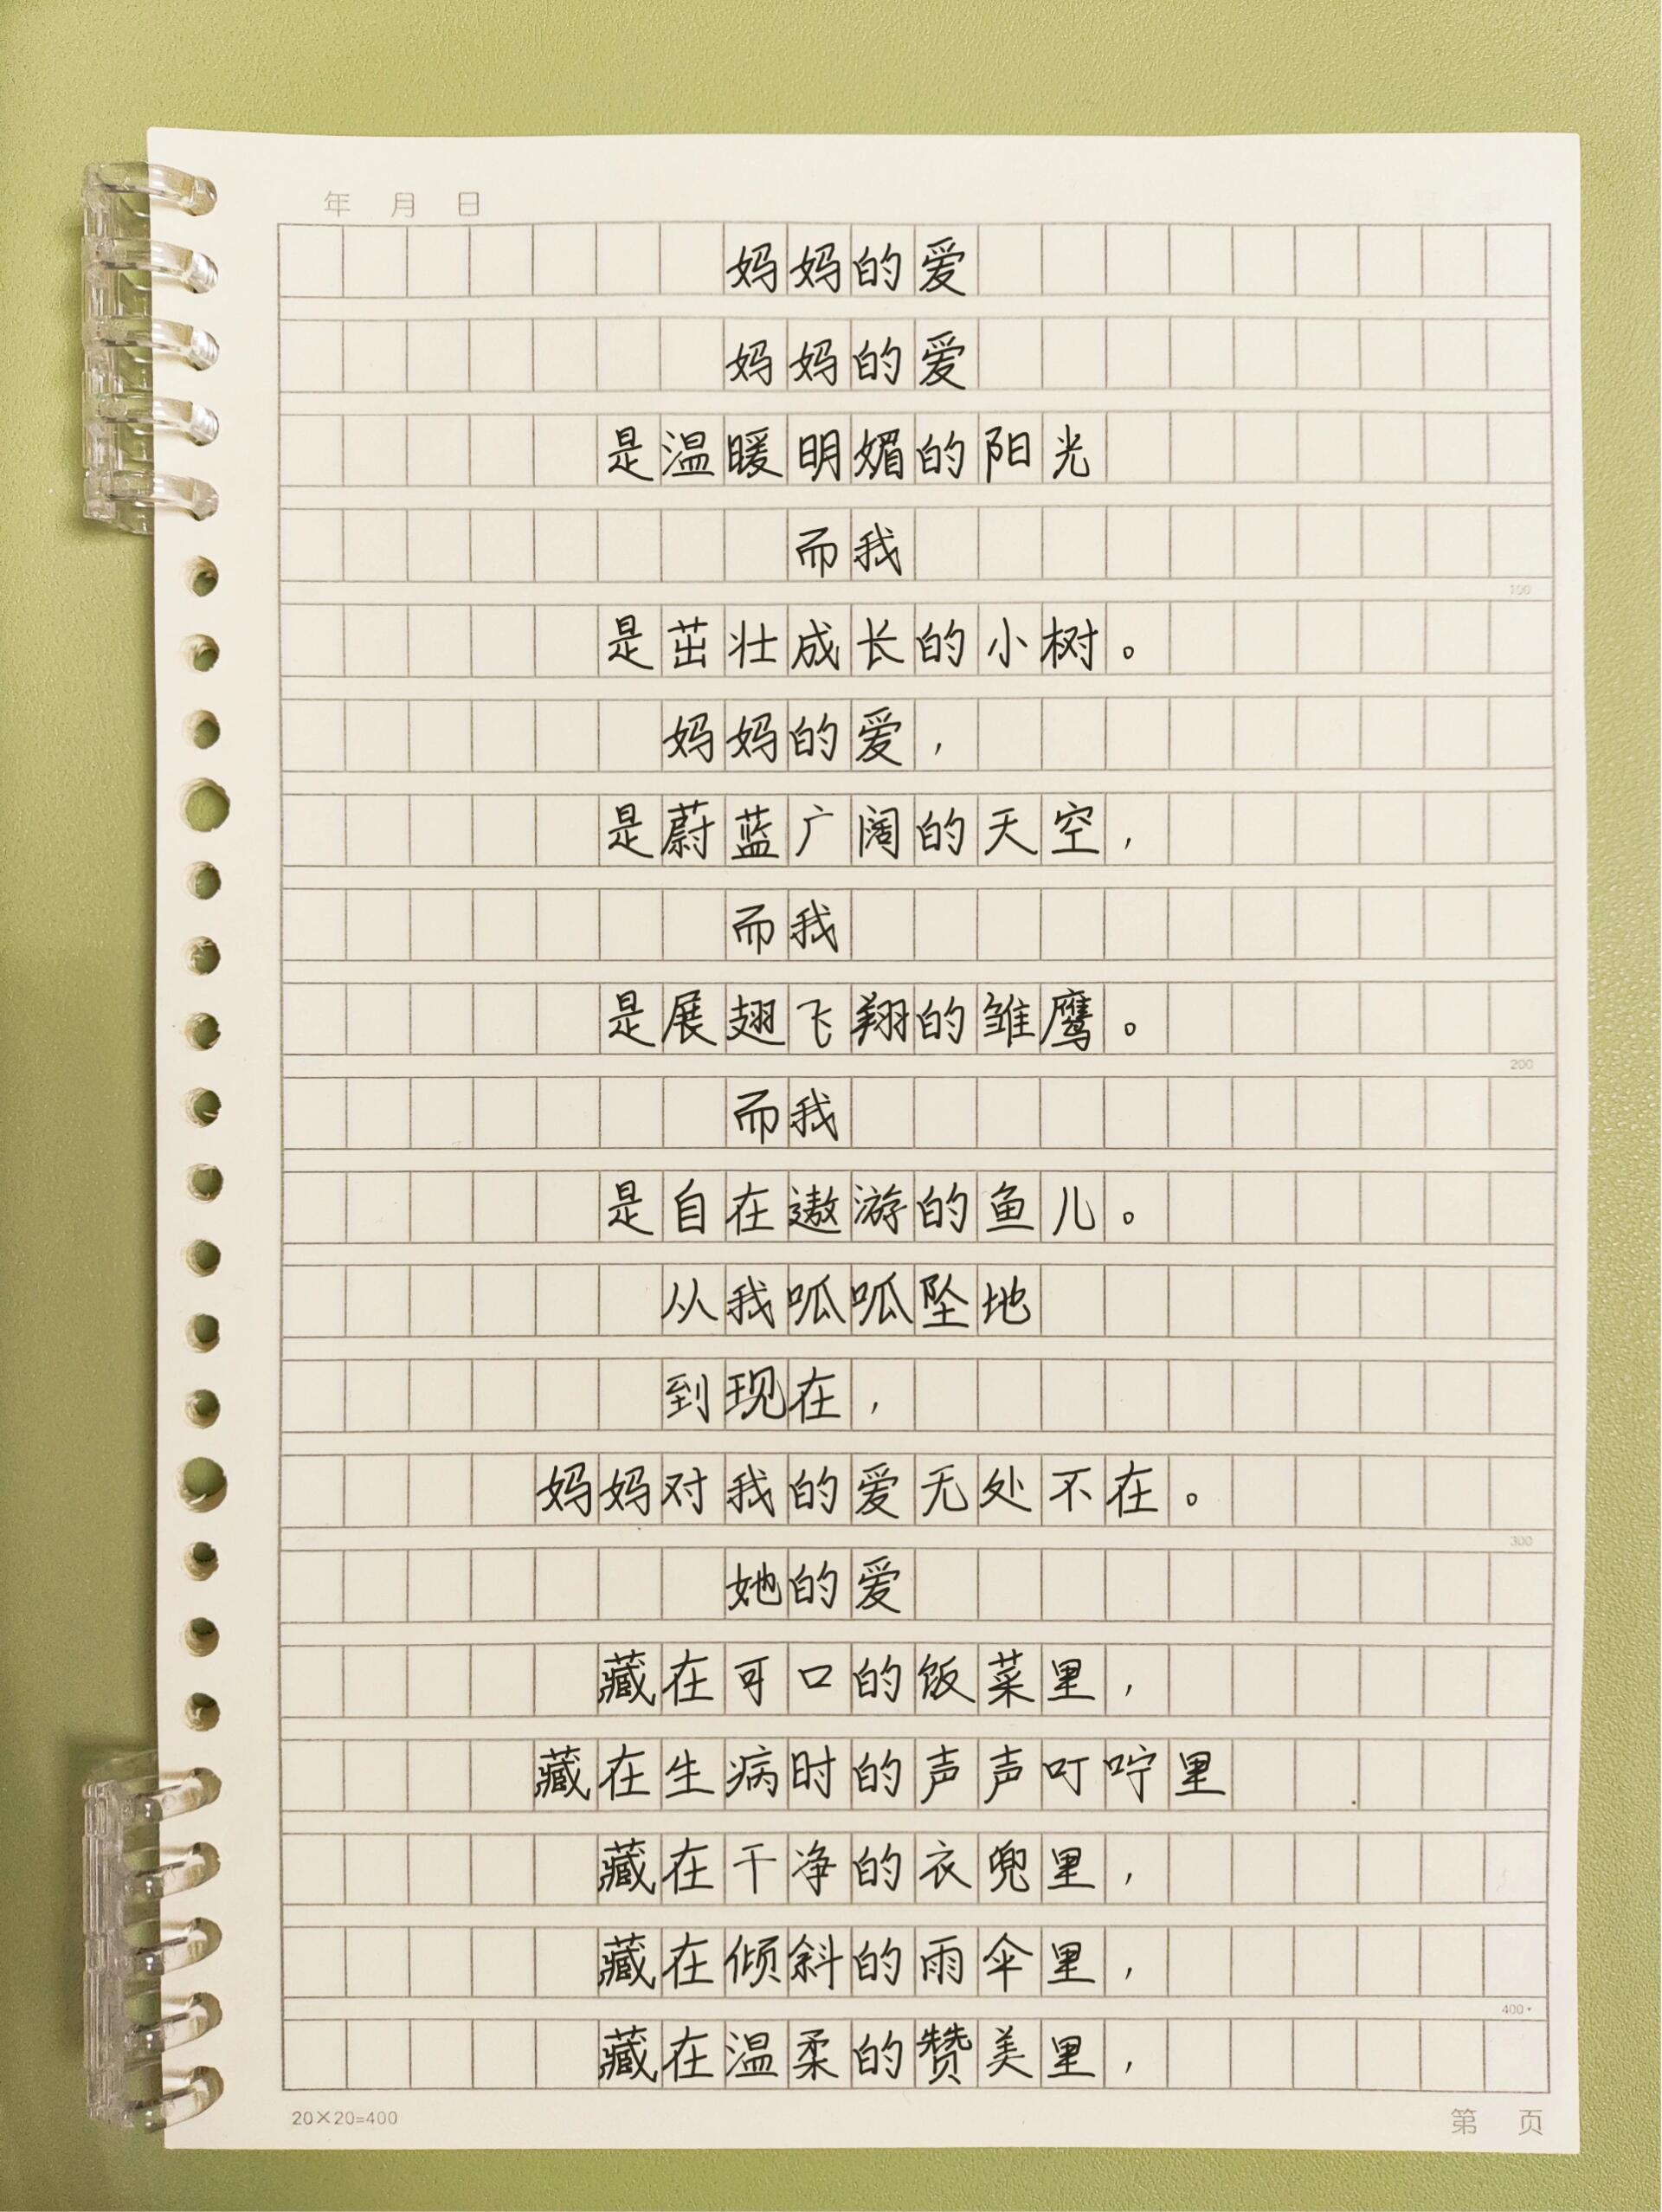 年 月 日
妈妈的爱
妈妈的爱
是温暖明媚的阳光
而我
100
是茁壮成长的小树。
妈妈的爱，
是蔚蓝广阔的天空，
而我
是展翅飞翔的雏鹰。
200
而我
是自在遨游的鱼儿。
从我呱呱坠地
到现在，
妈妈对我的爱无处不在。
300
她的爱
藏在可口的饭菜里，
藏在生病时的声声叮咛里
藏在干净的衣兜里，
藏在倾斜的雨伞里，
400
藏在温柔的赞美里，
20×20=400 第 页